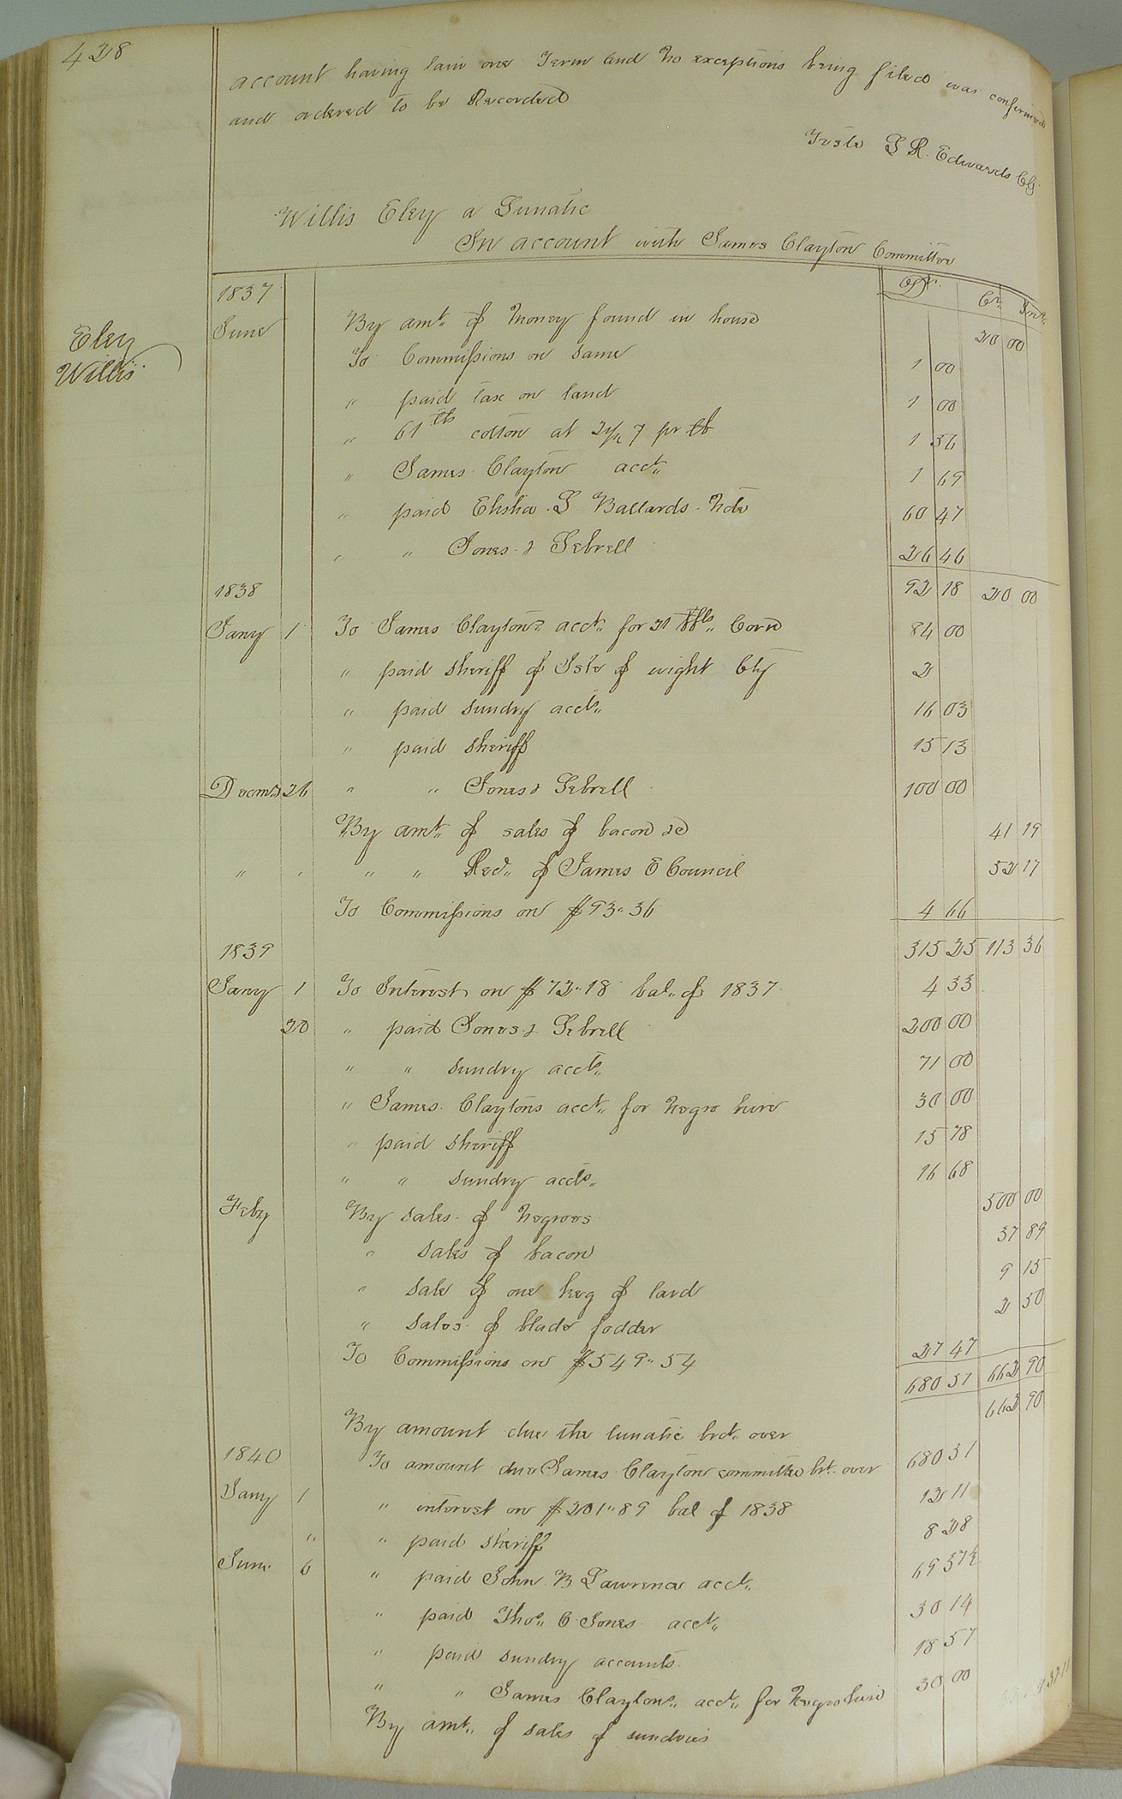 428
account having lain one Term and no exceptions being filed was confirmed
and ordered to be Recorded
Teste L R. Edwards Clk
Willis Eley a Lunatic
In account with James Clayton Committee
Eley
Willis
1837 Dr. Cr.
June By amt. of Money found in house 20 00
To Commissions on same 1 00
" paid tax on land 1 00
" 61 lbs cotton at pr lb 1 36
" James Clayton acct. 1 69
" paid Elisha L Ballards Note 60 47
" " Jones & Sebrell 26 46
92 18 20 00
1838
Jany 1 To James Claytons acct. for 21 bbls. Corn 84 00
" paid sheriff of Isle of wight Cty 2
" paid sundry accts. 16 03
" paid sheriff 15 13
Decem. 26 " " Jones & Sebrell 100 00
By amt. of sales of bacon &c 41 19
" " " " Recd. of James E Council 52 17
To Commissions on $93.36 4 66
315 25 113 36
1839
Jany 1 To Interest on $72.18 bal. of 1837 4 33
20 " paid Jones & Sebrell 200 00
" " sundry accts. 71 00
" James Claytons acct. for Negro hire 30 00
" paid sheriff 15 78
" " sundry accts. 16 68
Feby By sales of Negroes 500 00
" sales of bacon 37 89
" sale of one keg of lard 9 15
" sales of blade fodder 2 50
To Commissions on $549.54 27 47
680 51 662 90
By amount due the lunatic brt. over 662 90
1840 To amount due James Clayton committee brt. over 680 51
Jany 1 " interest on $201.89 bal of 1838 12 11
" " paid sheriff 8 28
June 6 " paid John B Lawrence acct. 69 57½
" paid Thos. C Jones acct. 30 14
" paid sundry accounts 18 57
" " James Claytons acct. for Negro hire 30 00
By amt. of sales of sundries